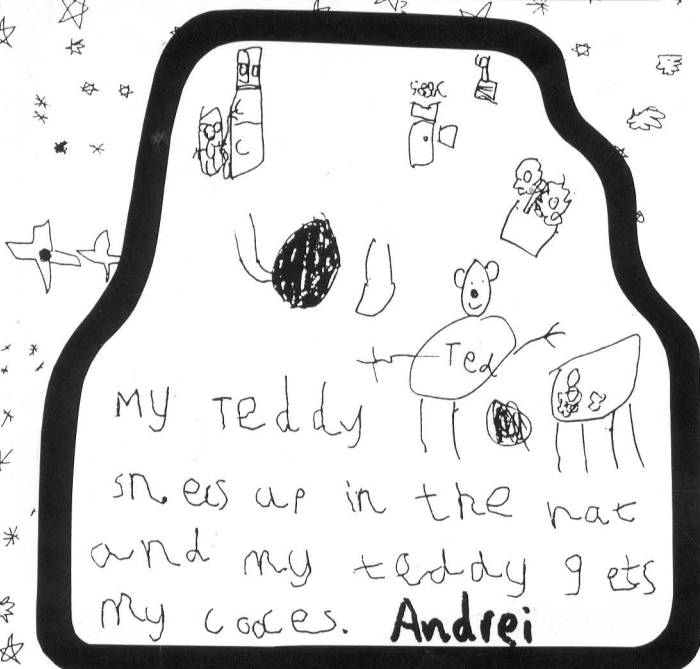 Ted
My Teddy
snecs up in the nat
and my teddy gets
my cooces. Andrei